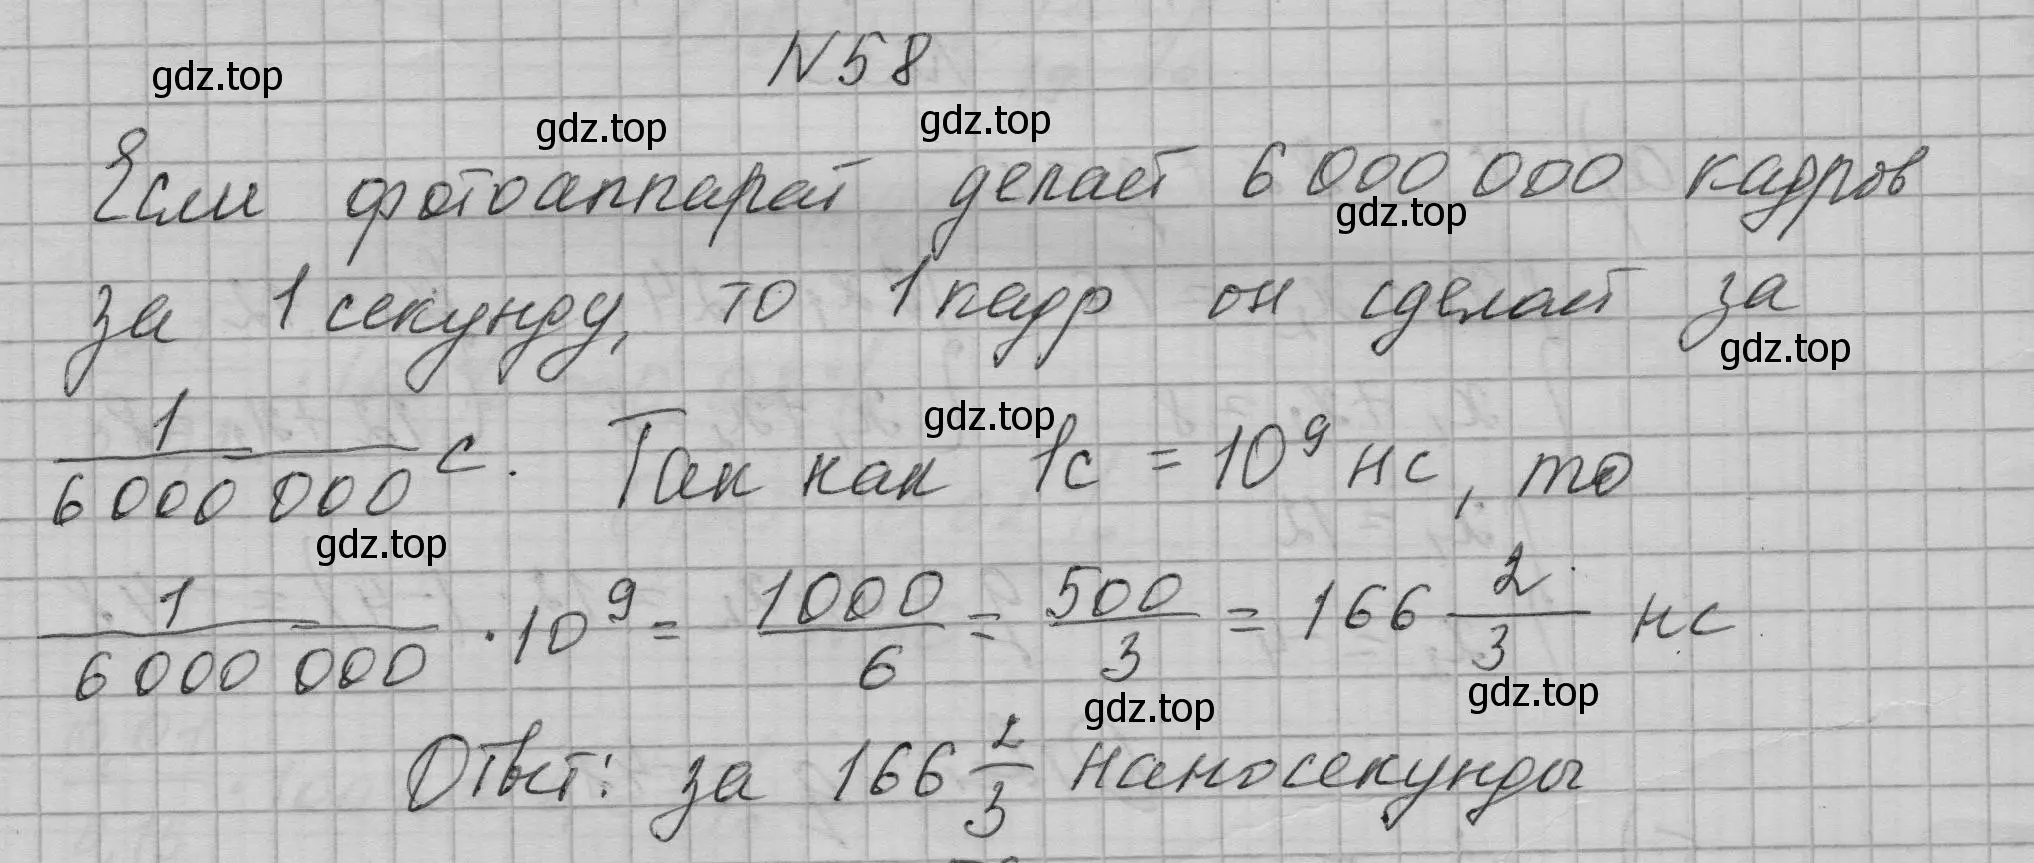 N58
gdz.top
gdz.top gdz.top
Если фотоаппарат делает 6 000 000 кадров
gdz.top
за 1 секунду, то 1 кадр он сделает за
gdz.top
1/6 000 000 с. Так как 1с = 10⁹ нс, то
gdz.top
gdz.top
1/6 000 000 · 10⁹ = 1000/6 = 500/3 = 166 2/3 нс
gdz.top gdz.top
Ответ: за 166 2/3 наносекунды